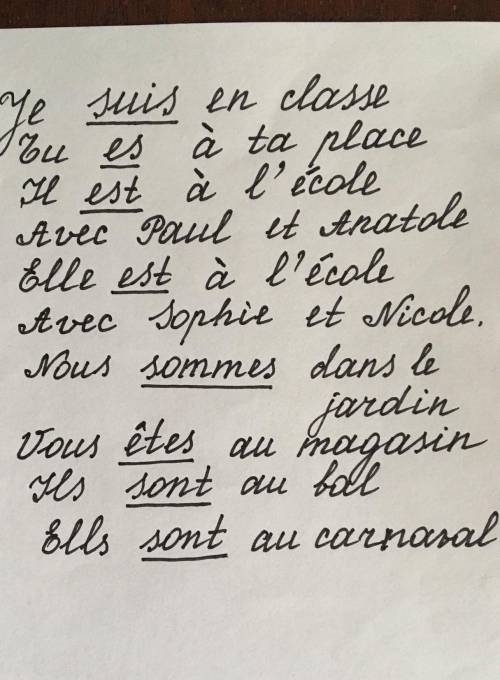 Je suis en classe
Tu es à ta place
Il est à l'école
Avec Paul et Anatole
Elle est à l'école
Avec Sophie et Nicole.
Nous sommes dans le
jardin
Vous êtes au magasin
Ils sont au bal
Ells sont au carnaval